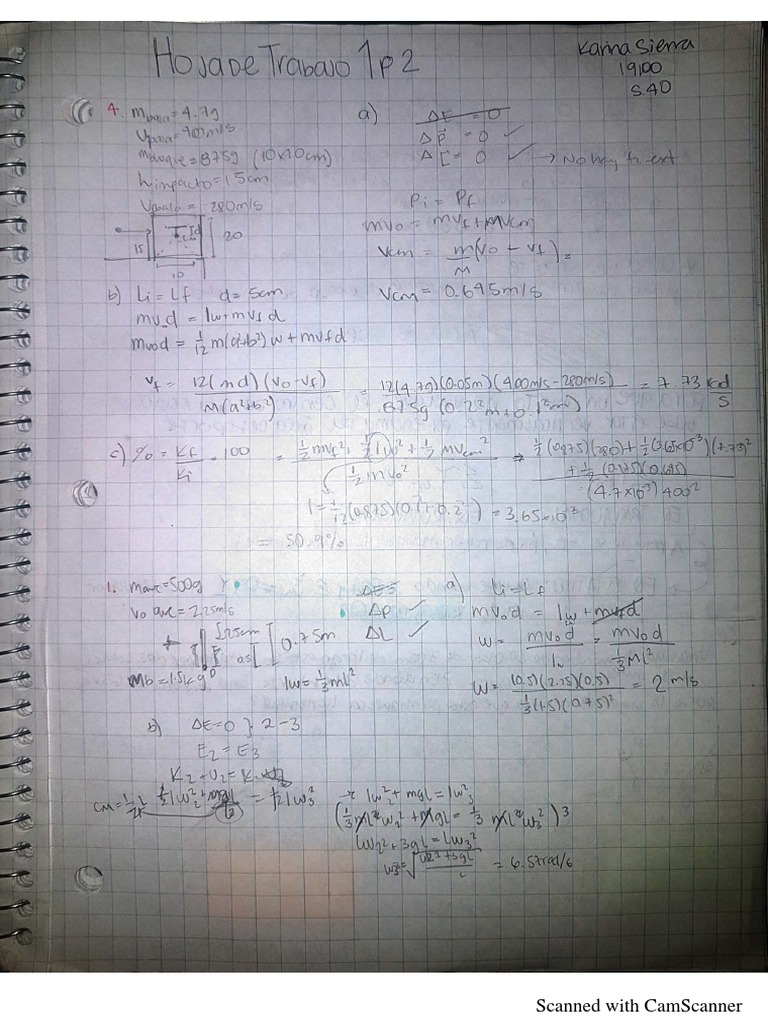 Hoja de Trabajo 1p2
Karina Sierra
19100
S.40
4. m bala = 4.7g
V bala = 400m/s
m bloque = 875g (10x20cm)
h impacto = 15cm
V bala = 280m/s
15
20
10
a) ΔE = 0
Δp⃗ = 0 ✓
ΔL⃗ = 0 ✓ → No hay fr. ext
Pi = Pf
mvo = mvf + Mvcm
Vcm = m/M (Vo - Vf) =
Vcm = 0.645m/s
b) Li = Lf d = 5cm
mv₀d = Iw + mvf d
mvod = 1/12 m(a²+b²) w + mvfd
vf = 12(md)(vo-vf) / M(a²+b²) = 12(4.7g)(0.05m)(400m/s-280m/s) / 875g(0.2²m+0.1²m) = 7.73 rad/s
c) % = Kf/Ki · 100 = ½mvf² + ½Iw² + ½mvcm² / ½mvo²
(4.7x10⁻³)400²
I = 1/12 (0.875)(0.1²+0.2²) = 3.65x10⁻³
= 50.9%
1. m ave = 500g
Vo ave = 2.25m/s
0.75m
Mb = 1.5kg
Iw = ⅓ml²
Δp ✓
ΔL ✓
a) Li = Lf
mv₀d = Iw + mvfd
w = mvod / Iw = mvod / ⅓Ml²
w = (0.5)(2.25)(0.5) / ⅓(1.5)(0.75)² = 2 m/s
b) ΔE=0 } 2-3
E₂ = E₃
K₂ + U₂ = K
CM = ½L
½Iw₂² mgl = ½Iw₃²
→ Iw₂² + mgl = Iw₃²
(⅓ml²w₂² + mgl = ⅓ ml²w₃²) 3
lw₂² + 3gl = lw₃²
= 6.57rad/s
Scanned with CamScanner